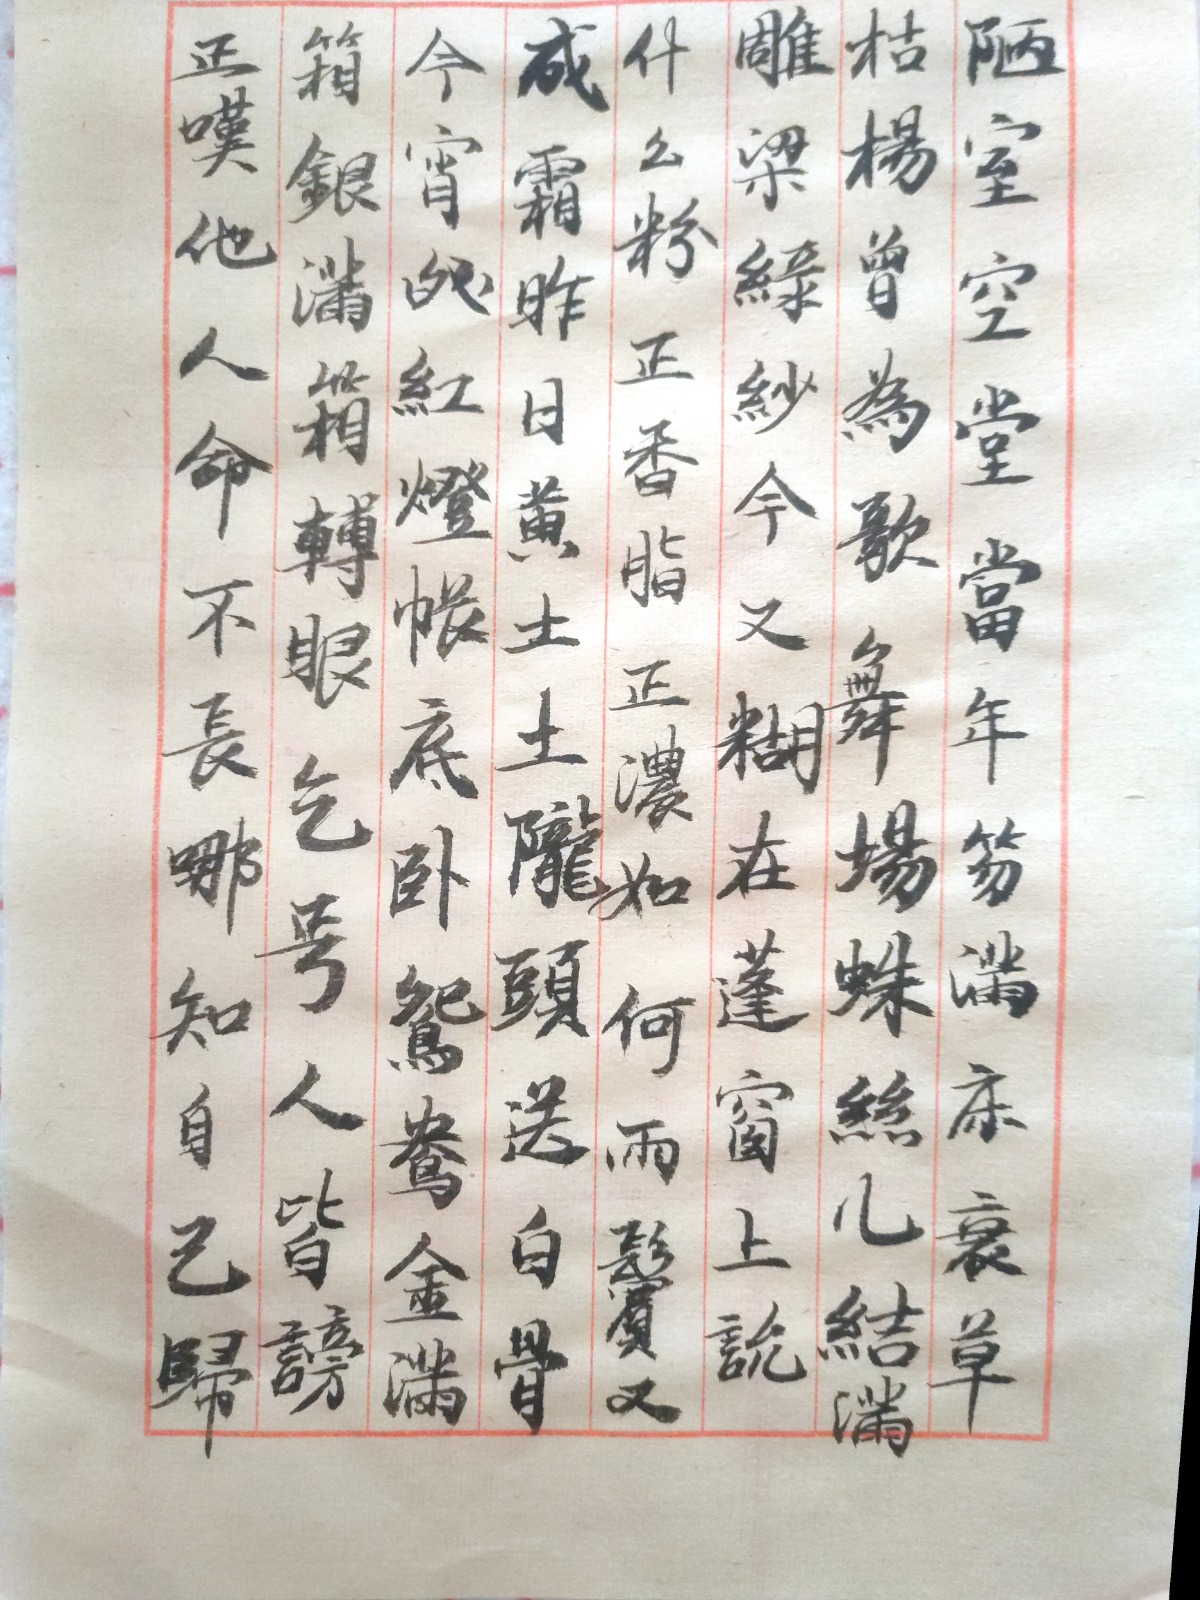 陋室空堂當年笏滿床衰草
枯楊曾為歌舞場蛛絲儿結滿
雕梁綠紗今又糊在蓬窗上說
什么粉正香脂正濃如何兩鬢又
成霜昨日黃土土隴頭送白骨
今宵的紅燈帳底卧鴛鴦金滿
箱銀滿箱轉眼乞号人皆謗
正嘆他人命不長哪知自己歸